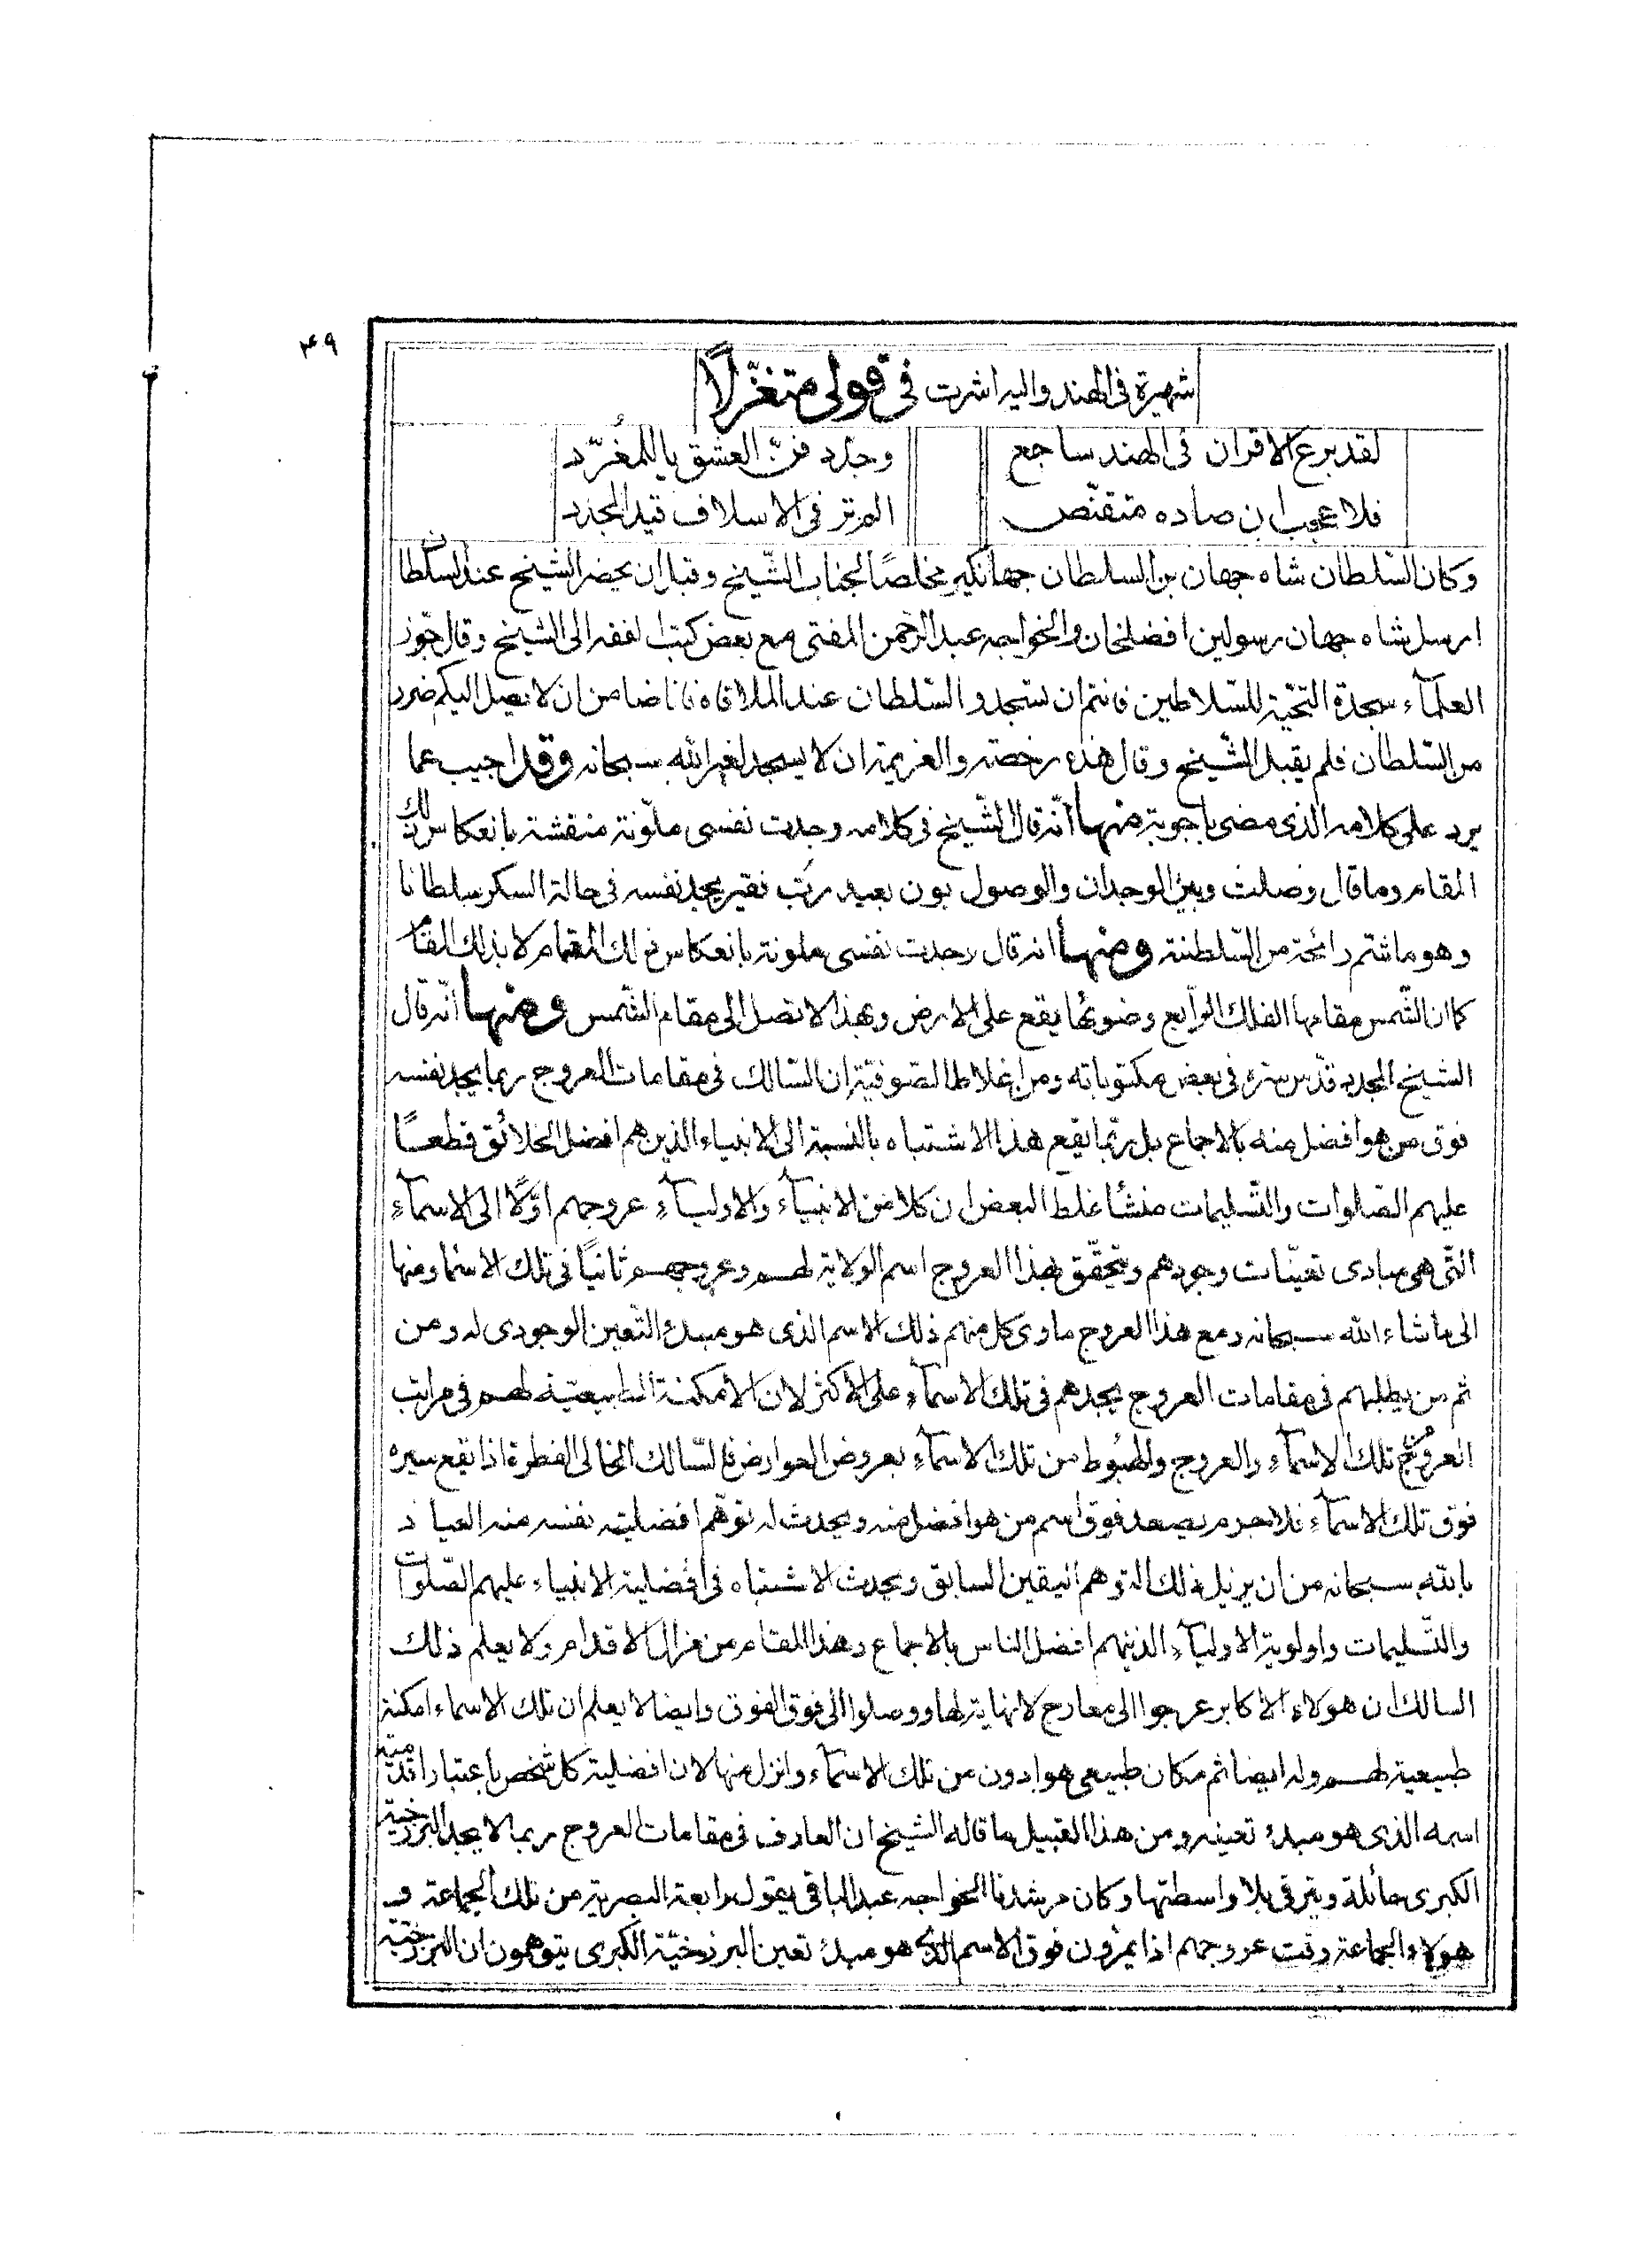 ٤٩
شهيرة فى الهند واليه اشرت فى قولى متغزّلاً
لقد برع الاقران فى الهند ساجع وجدّد فنّ العشق ياللمغرّد
فلا عجب ان صاده متقنّص الم تر فى الاسلاف قيد المجدد
وكان السّلطان شاه جهان بن السلطان جهانكير مخلصًا لجناب الشّيخ وقبل ان يحضر الشيخ عند السلطان
ارسل شاه جهان رسولين افضلخان والخواجه عبد الرحمن المفتى مع بعض كتب الفقه الى الشيخ وقال جّوز
العلمآء سجدة التحيّة للسّلاطين فانتم ان تسجدوا السّلطان عند الملاقاة فانا ضامن ان لا يصيل اليكم ضرر
من السّلطان فلم يقبل الشّيخ وقال هذه رخصة والعزيمة ان لا يسجد لغير الله سبحانه وقد اجيب عما
يرد على كلامه الذى مضى باجوبة منها انّه قال الشّيخ فى كلامه وجدت نفسى ملوّنة منقشة بانعكاس ذلك
المقام وما قال وصلت وبين الوجدان والوصول بون بعيد ربّ فقير يجد نفسه فى حالة السكر سلطانا
وهو ما شتم رائحة من السّلطنة ومنها انه قال وجدت نفسى ملونة بانعكاس ذلك المقام لا بذلك المقام
كما ان الشّمس مقامها الفلك الرّابع وضوئها يقع على الارض وبهذا لا تصل الى مقام الشّمس ومنها انّه قال
الشيخ المجدد قدّس سرّه فى بعض مكتوباته ومن اغلاط الصّوفيّة ان السّالك فى مقامات العروج ربما يجد نفسه
فوق من هو افضل منه بالاجماع بل ربّما يقع هذا الاشتباه بالنسبة الى الانبياء الذين هم افضل الخلائق قطعًا
عليهم الصّلوات والتّسليمات منشأ غلط البعض ان كلا من الانبيآء والاوليآء عروجهم اوّلاً الى الاسمآء
التّى هى مبادى تعيّنات وجودهم ويتحقّق بهذا العروج اسم الولاية لهم وعروجهم ثانيًا فى تلك الاسما ومنها
الى ما شاء الله سبحانه ومع هذا العروج ماوى كل منهم ذلك الاسم الذى هو مبدء التّعين الوجودى له ومن
ثم من يطلبهم فى مقامات العروج يجدهم فى تلك الاسمآء على الاكثر لان الامكنة الطبيعيّة لهم فى مراتب
العروج تلك الاسمآء والعروج والهبوط من تلك الاسمآء بعروض العوارض فالسّالك الخالى الفطرة اذا يقع سيره
فوق تلك الاسمآء فلا جرم يصعد فوق اسم من هو افضل منه ويحدث له توهّم افضلية نفسه منه العياذ
بالله سبحانه من ان يزيل ذلك التوهم اليقين السابق ويحدث الاشتباه فى افضلية الانبياء عليهم الصّلوات
والتّسليمات واولوية الاوليآء الذينهم افضل الناس بالاجماع وهذا المقام من مزال الاقدام ولا يعلم ذلك
السالك ان هولاء الاكابر عرجوا الى معارج لا نهاية لها ووصلوا الى فوق الفوق وايضا لا يعلم ان تلك الاسماء امكنة
طبيعية لهم وله ايضا ثم مكان طبيعى هو ادون من تلك الاسمآء وانزل منها لان افضلية كل شخص باعتبار اقدمية
اسمه الذى هو مبدء تعينه ومن هذا القبيل ما قاله الشيخ ان العارف فى مقامات العروج ربما لا يجد البرزخية
الكبرى حائلة ويترقى بلا واسطتها وكان مرشدنا الخواجه عبد الباقى يقول رابعة البصرية من تلك الجماعة و
هولاء الجماعة وقت عروجهم اذا يمرّون فوق الاسم الذى هو مبدء تعين البرزخيّة الكبرى يتوهمون ان البرزخية